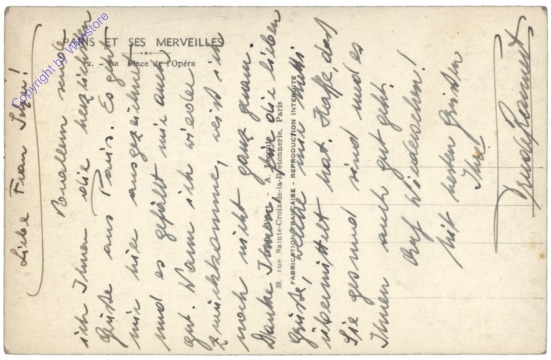 PARIS ET SES MERVEILLES
Place de l'Opéra
Copyright by Store
18, rue Sainte-Croix-de-la-Bretonnerie, Paris
FABRICATION FRANÇAISE - REPRODUCTION INTERDITE
Liebe Frau
Vor allem sende
ich Ihnen die herzlichsten
Grüße aus Paris. Es geht
mir hier ausgezeichnet
und es gefällt mir auch
gut. Wann ich wieder
zurückkomme, weiß ich
noch nicht ganz genau.
Danke Ihnen für die lieben
Grüße, welche mir
übermittelt hat. Hoffe, daß
Sie gesund sind und es
Ihnen auch gut geht.
Auf Wiedersehen!
Mit Grüßen
Ihre